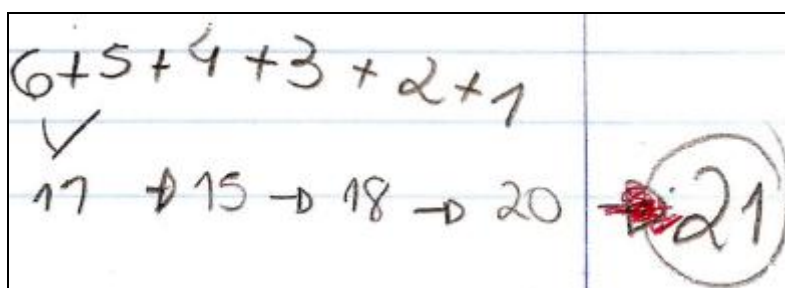 6+5+4+3+2+1
11 → 15 → 18 → 20 → 21